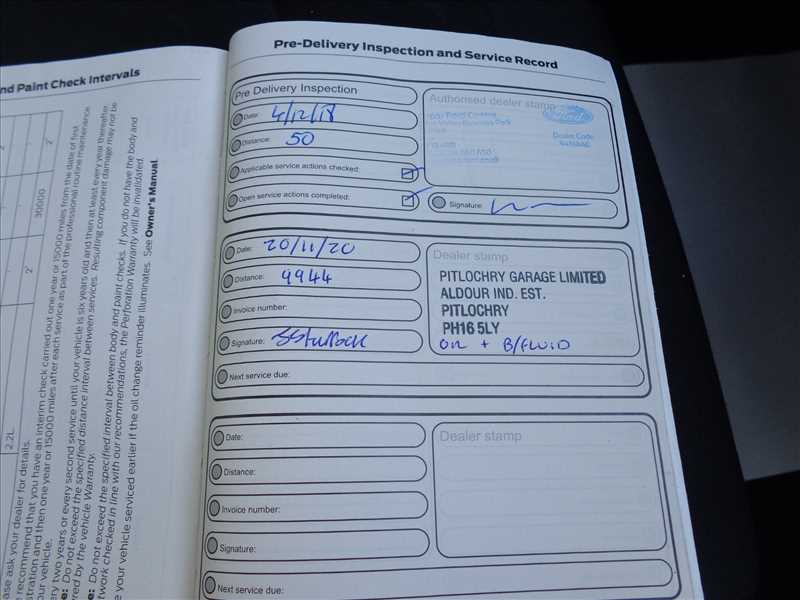 nd Paint Check Intervals
30000
2'
2'
2.2L
ase ask your dealer for details.
recommend that you have an interim check carried out one year or 15000 miles from the date of first
stration and then one year or 15000 miles after each service as part of the professional routine maintenance
our vehicle.
ery two years or every second service until your vehicle is six years old and then at least every year thereafter.
e: Do not exceed the specified distance interval between services. Resulting component damage may not be
red by the vehicle Warranty.
e: Do not exceed the specified interval between body and paint checks. If you do not have the body and
twork checked in line with our recommendations, the Perforation Warranty will be invalidated.
e your vehicle serviced earlier if the oil change reminder illuminates. See Owner's Manual.
Pre-Delivery Inspection and Service Record
Pre Delivery Inspection
Date: 4/12/18
Distance: 50
Applicable service actions checked:
Open service actions completed:
Authorised dealer stamp
Ford
Dealer Code
Signature:
Date: 20/11/20
Distance: 9944
Invoice number:
Signature:
Next service due:
Dealer stamp
PITLOCHRY GARAGE LIMITED
ALDOUR IND. EST.
PITLOCHRY
PH16 5LY
OIL + B/FLUID
Date:
Distance:
Invoice number:
Signature:
Next service due:
Dealer stamp